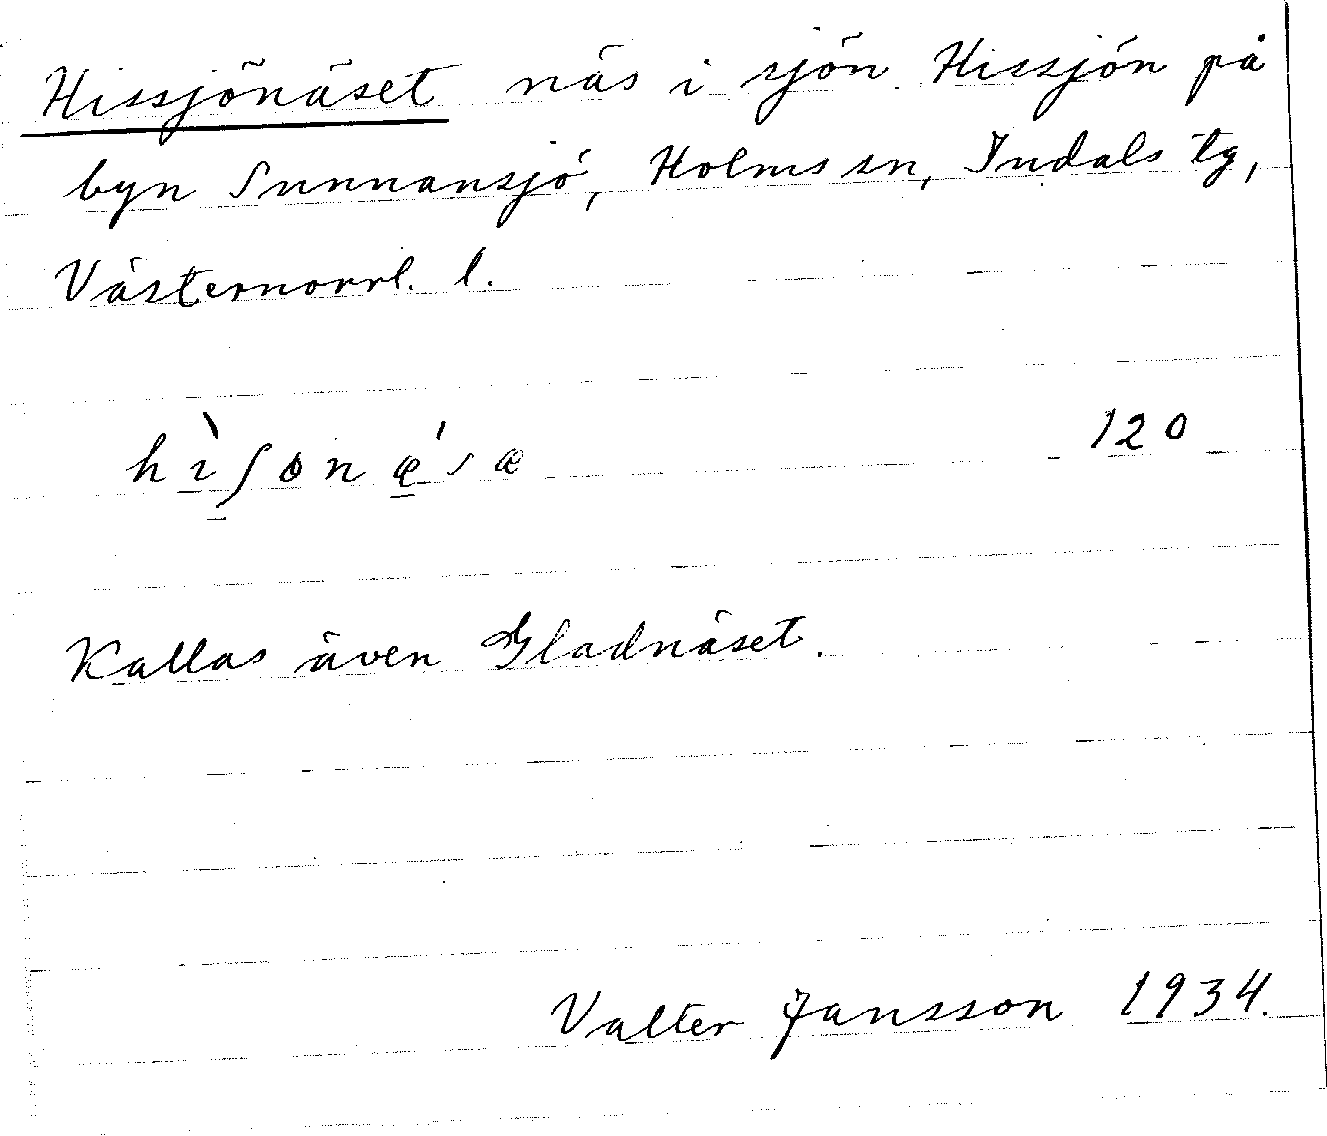 Hissjönäset näs i sjön Hissjön på
byn Sunnansjö, Holms sn, Indals tg,
Västernorrl. l.
hìʃonæ´sæ 120
Kallas även Gladnäset.
Valter Jansson 1934.